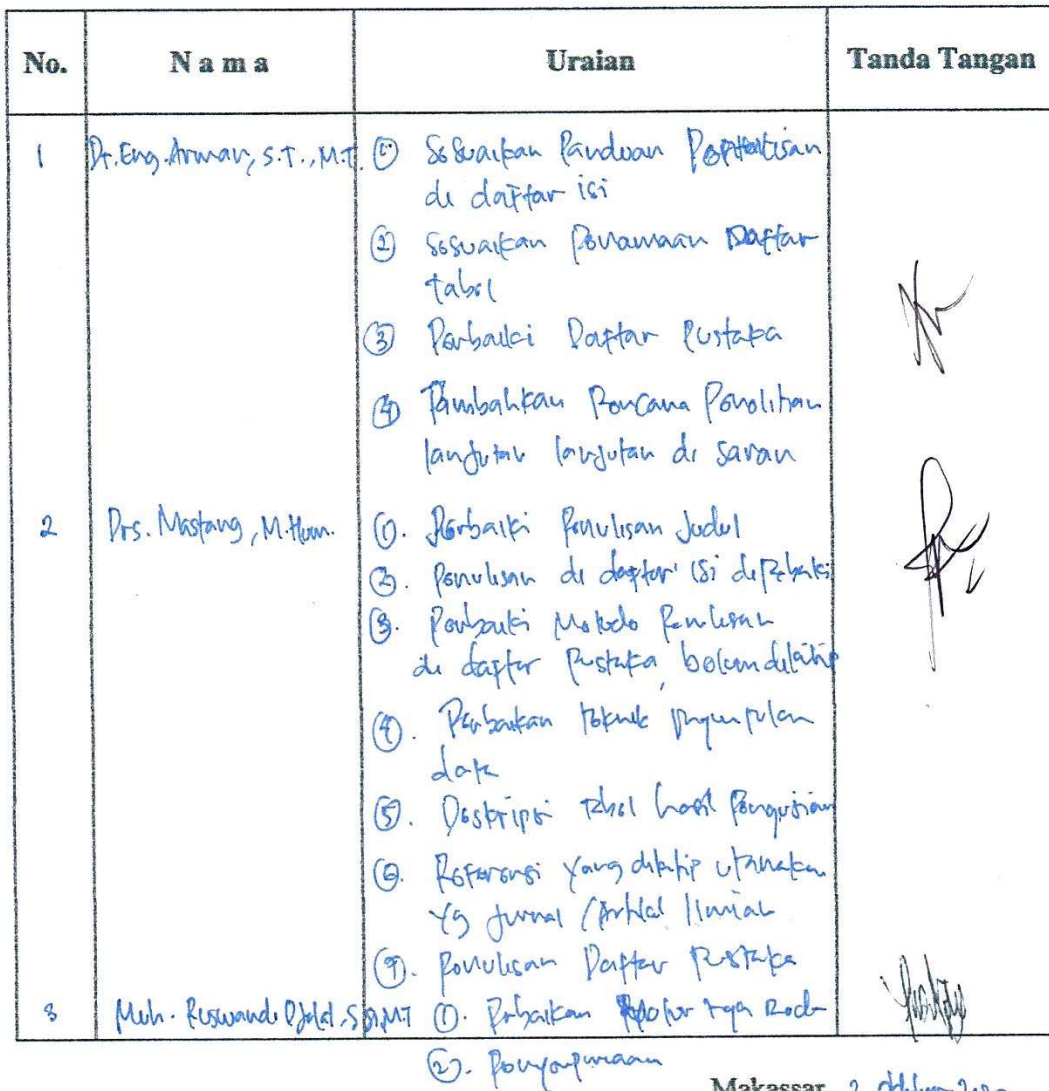 No.
N a m a
Uraian
Tanda Tangan
1
Dr. Eng. Arman, S.T., M.T.
① Sesuaikan Panduan
di daftar isi
② Sesuaikan Penamaan Daftar
tabel
③ Perbaiki Daftar Pustaka
④ Tambahkan Rencana Penelitian
lanjutan lanjutan di saran
2
Drs. Mastang, M.Hum.
①. Perbaiki Penulisan Judul
②. Penulisan di daftar isi diperbaiki
③. Perbaiki Metode Penulisan
di daftar Pustaka, belum dikutip
④. Perbaikan teknik pengumpulan
data
⑤. Deskripsi tabel hasil Pengujian
⑥. Referensi yang dikutip utamakan
yg jurnal /Artikel Ilmiah
⑦. Penulisan Daftar Pustaka
3
Muh. Ruswandi Djalal, M.T
①. Perbaikan
②. Penyempurnaan
Makassar, 2